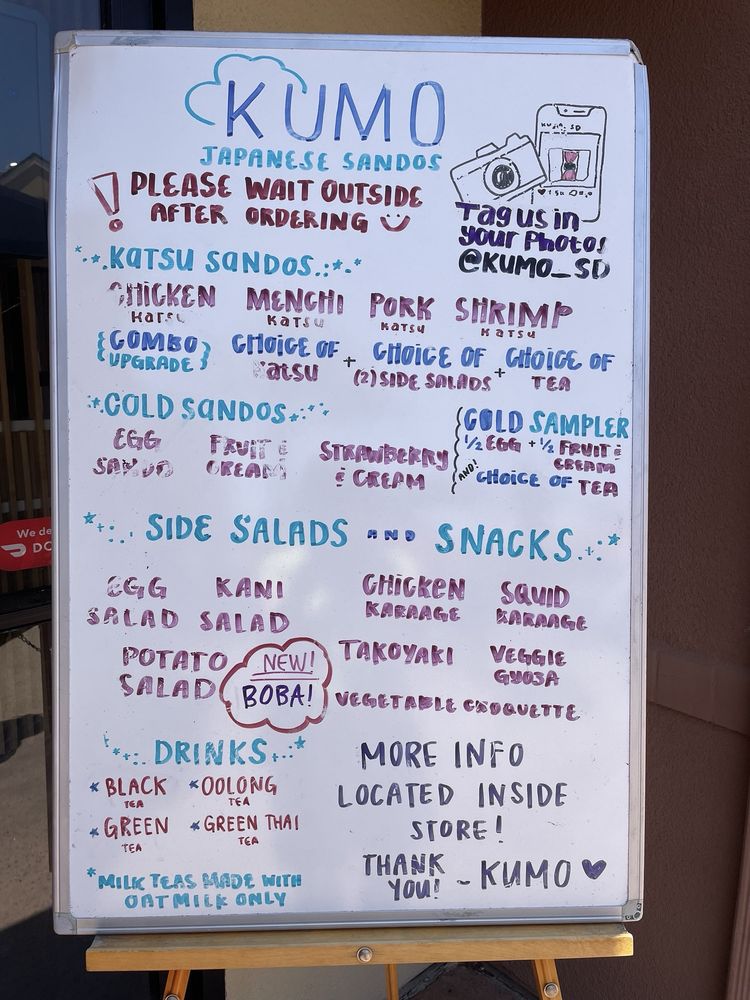 KUMO
JAPANESE SANDOS
! PLEASE WAIT OUTSIDE
AFTER ORDERING
Tag us in
your Photos!
@KUMO_SD
KATSU SANDOS
CHICKEN KATSU
MENCHI KATSU
PORK KATSU
SHRIMP KATSU
{COMBO UPGRADE}
CHOICE OF KATSU + CHOICE OF (2) SIDE SALADS + CHOICE OF TEA
COLD SANDOS
EGG SANDO
FRUIT & CREAM
STRAWBERRY & CREAM
COLD SAMPLER
1/2 EGG + 1/2 FRUIT & CREAM
AND CHOICE OF TEA
SIDE SALADS AND SNACKS
EGG SALAD
KANI SALAD
POTATO SALAD
NEW!
BOBA!
CHICKEN KARAAGE
SQUID KARAAGE
TAKOYAKI
VEGGIE GYOZA
VEGETABLE CROQUETTE
DRINKS
* BLACK TEA
* OOLONG TEA
* GREEN TEA
* GREEN THAI TEA
*MILK TEAS MADE WITH
OAT MILK ONLY
MORE INFO
LOCATED INSIDE
STORE!
THANK YOU! - KUMO
We de
DO